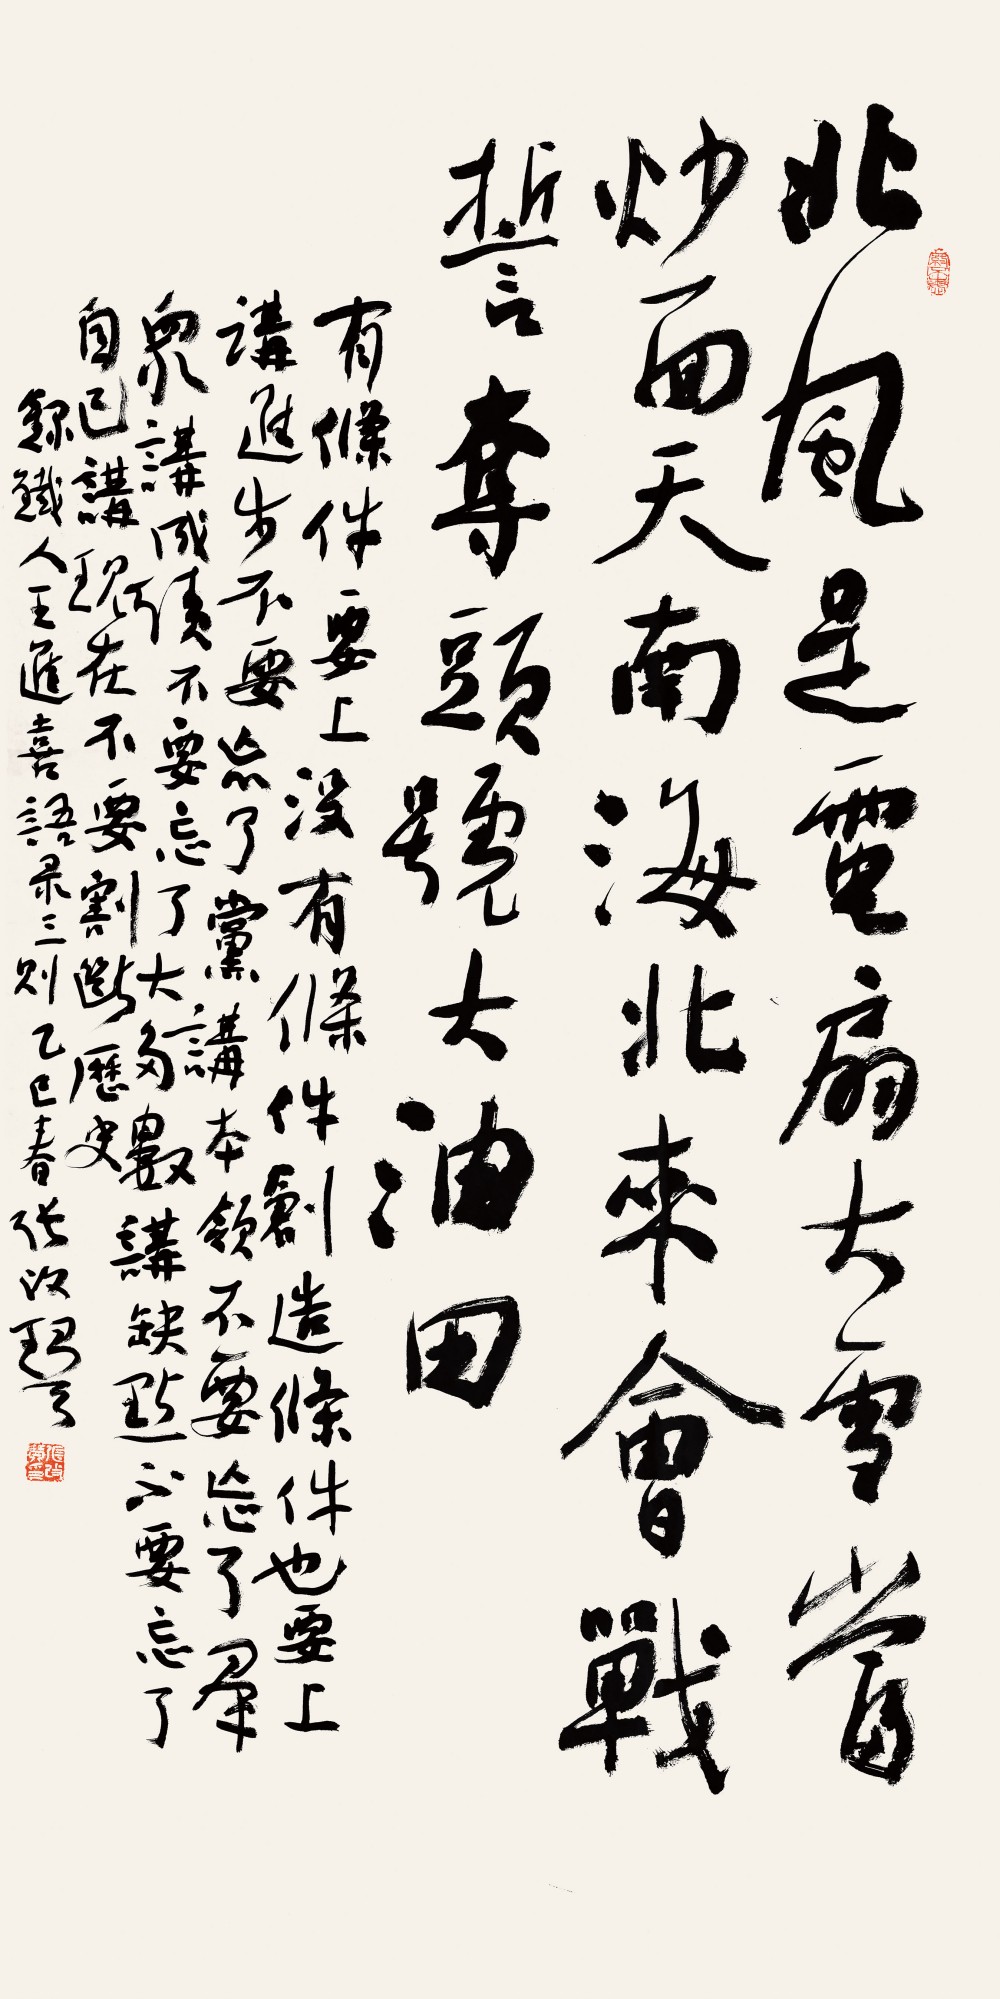 北風是電扇大雪當
炒面天南海北來會戰
誓奪頭號大油田
有條件要上沒有條件創造條件也要上
講進步不要忘了黨講本領不要忘了羣
衆講成績不要忘了大多數講缺點不要忘了
自己講現在不要割斷歷史
錄鐵人王進喜語录三則乙巳春张改琴